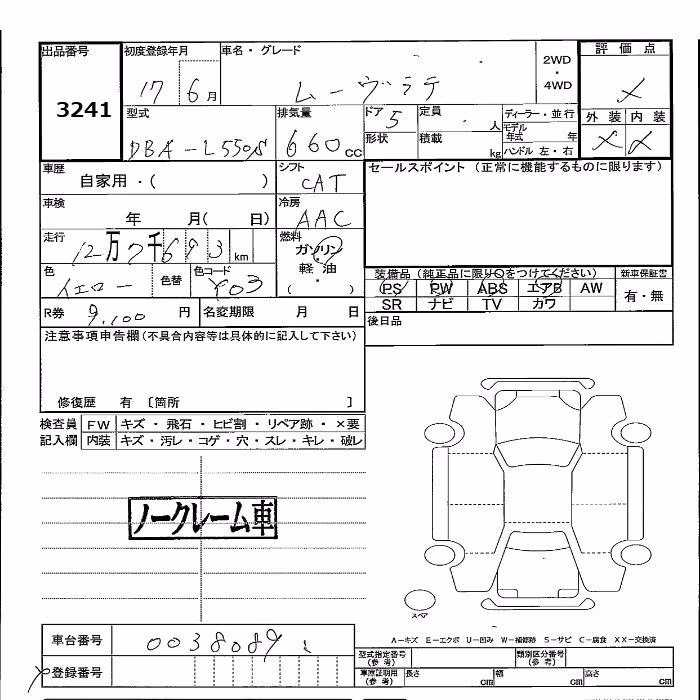 出品番号 初度登録年月 車名・グレード 2WD・4WD 評価点
3241 17 6月 ムーヴラテ ×
型式 排気量 ドア 5 定員 人 ディーラー・並行 外装 内装
DBA-L550S 660cc 形状 積載 kg モデル年式 年 ハンドル 左・右 × ×
車歴 シフト セールスポイント (正常に機能するものに限ります)
自家用・( ) CAT
車検 冷房
年 月( 日) AAC
走行 燃料
12万7千693km ガソリン・軽油・( )
色 色替 色コード 装備品 (純正品に限り○をつけてください) 新車保証書
イエロー Y03 PS PW ABS エアB AW 有・無
SR ナビ TV カワ
R券 9,100円 名変期限 月 日 後日品
注意事項申告欄(不具合内容等は具体的に記入して下さい)
修復歴 有 〔箇所 〕
検査員 FW キズ・飛石・ヒビ割・リペア跡・×要
記入欄 内装 キズ・汚レ・コゲ・穴・スレ・キレ・破レ
ノークレーム車
スペア
A-キズ E-エクボ U-凹み W-補修跡 S-サビ C-腐食 XX-交換済
車台番号 0038089 型式指定番号(参考) 類別区分番号(参考)
登録番号 車庫証明用(参考) 長さ cm 幅 cm 高さ cm